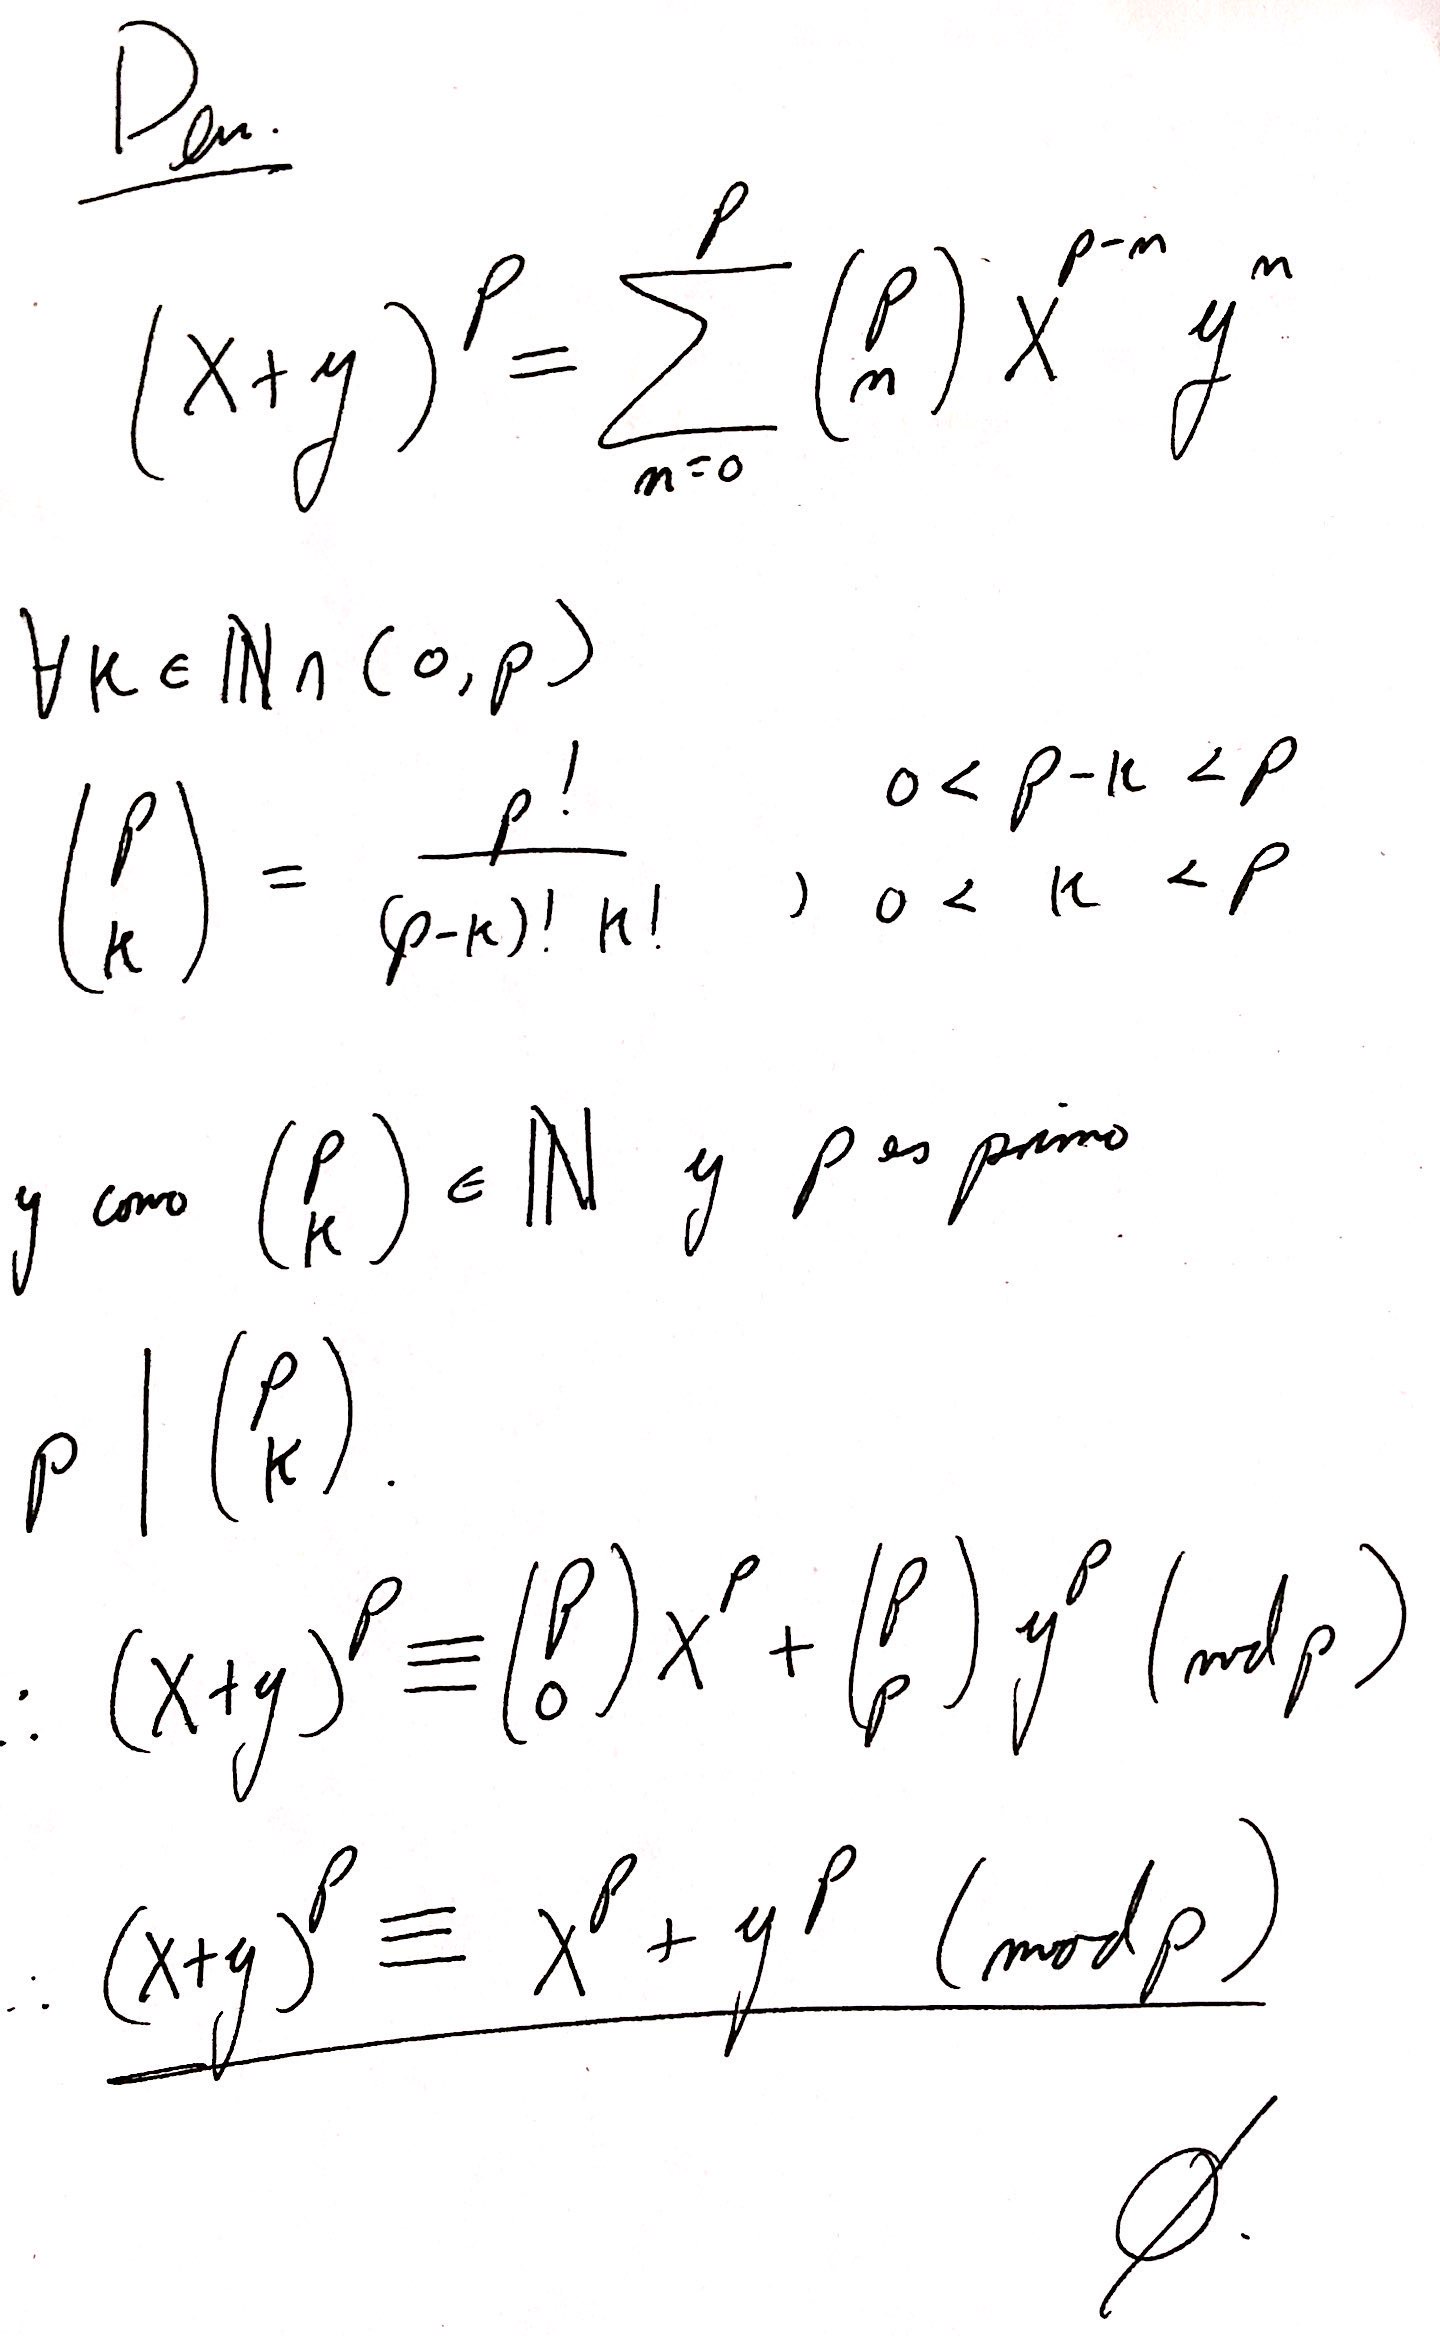 Dem.
(x+y)^p = \sum_{n=0}^{p} \binom{p}{n} x^{p-n} y^n
∀k ∈ ℕ ∩ (0,p)
\binom{p}{k} = \frac{p!}{(p-k)! k!} , 0 < p-k < p
0 < k < p
y como \binom{p}{k} ∈ ℕ y p es primo
p | \binom{p}{k}.
∴ (x+y)^p ≡ \binom{p}{0} x^p + \binom{p}{p} y^p (mod p)
∴ (x+y)^p ≡ x^p + y^p (mod p)
∅.